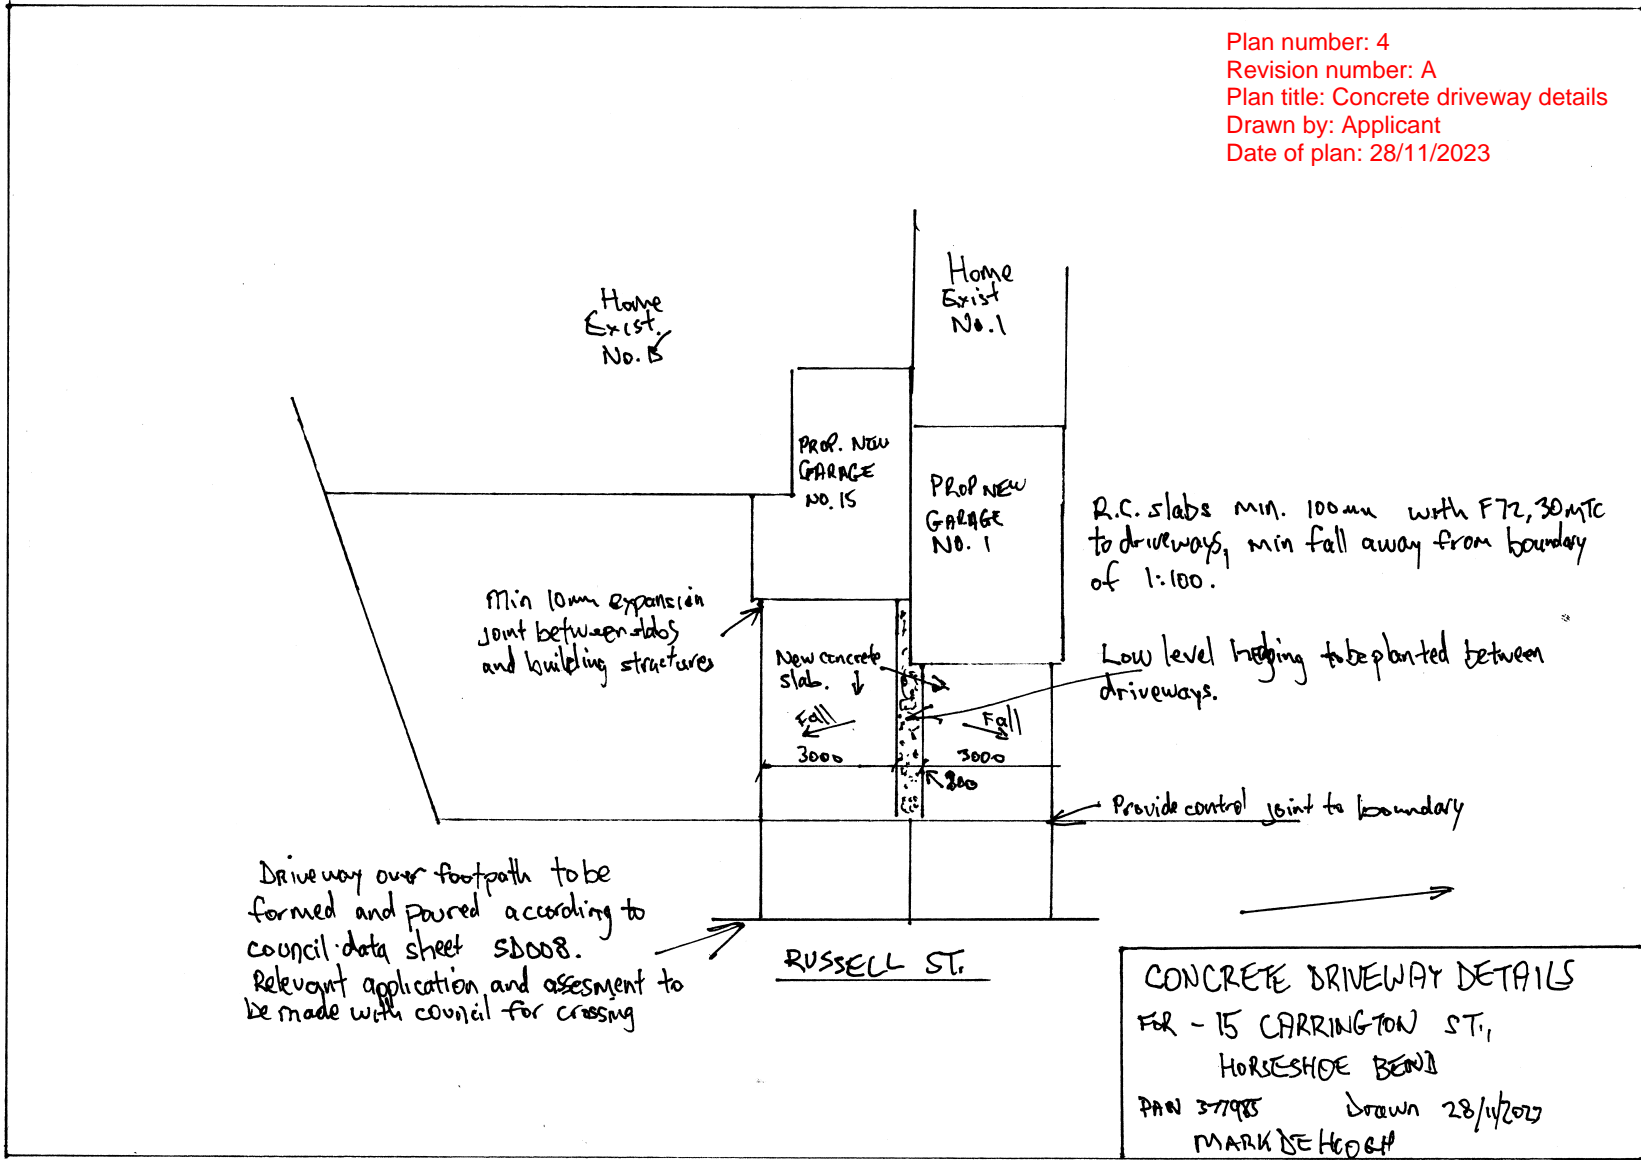 Plan number: 4
Revision number: A
Plan title: Concrete driveway details
Drawn by: Applicant
Date of plan: 28/11/2023
Home
Exist.
No. 15
Home
Exist
No. 1
PROP. NEW
GARAGE
NO. 15
PROP NEW
GARAGE
NO. 1
R.C. slabs min. 100mm with F72, 30MPC
to driveways, min fall away from boundary
of 1:100.
Min 10mm expansion
joint between slabs
and building structures
New concrete
slab.
Low level hedging to be planted between
driveways.
Fall
Fall
3000
3000
Provide control joint to boundary
Driveway over footpath to be
formed and poured according to
council data sheet SD008.
Relevant application and assesment to
be made with council for crossing
RUSSELL ST.
CONCRETE DRIVEWAY DETAILS
FOR - 15 CARRINGTON ST.,
HORSESHOE BEND
PAN 377985 Drawn 28/11/2023
MARK DE HOOGH